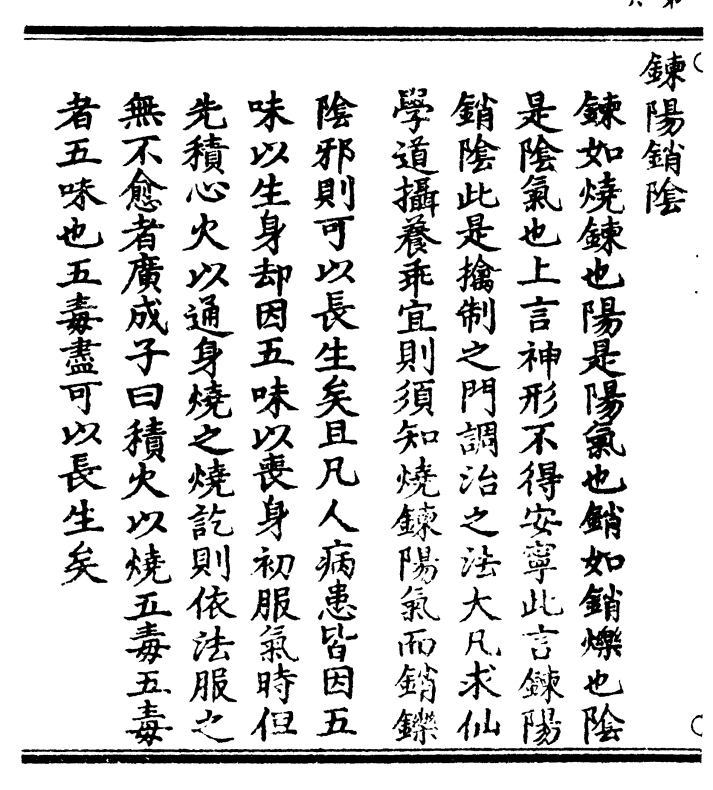 鍊陽銷陰
鍊如燒鍊也陽是陽氣也銷如銷爍也陰
是陰氣也上言神形不得安寧此言鍊陽
銷陰此是擒制之門調治之法大凡求仙
學道攝養乖宜則須知燒鍊陽氣而銷鑠
陰邪則可以長生矣且凡人病患皆因五
味以生身却因五味以喪身初服氣時但
先積心火以通身燒之燒訖則依法服之
無不愈者廣成子曰積火以燒五毒五毒
者五味也五毒盡可以長生矣